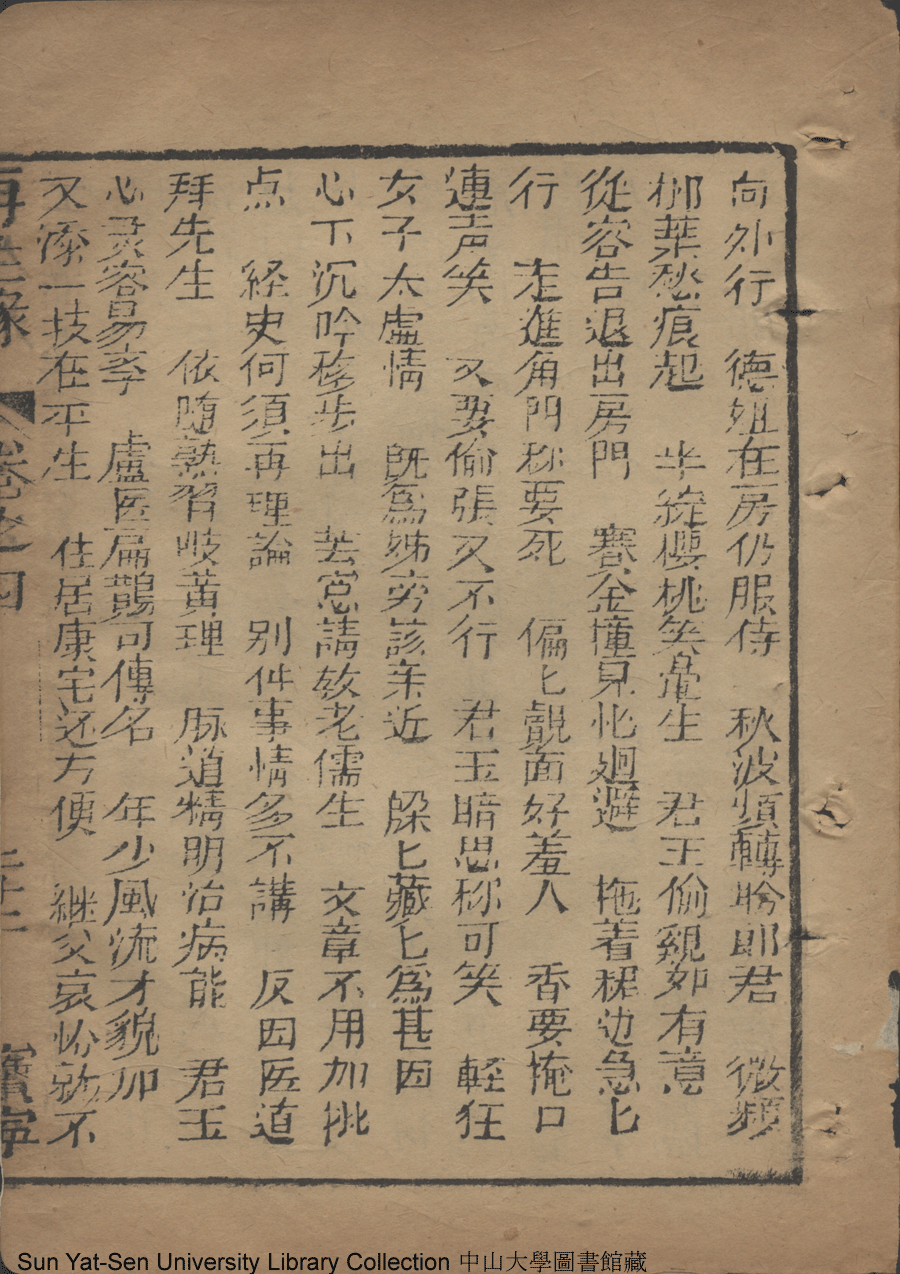 向外行 德姐在房仍服侍 秋波頻轉盼郎君 微顰
柳葉愁痕起 半綻櫻桃笑暈生 君玉偷觀如有意
從容告退出房門 賽金撞見忙廻避 拖着裙边急匕
行 走進角門称要死 偏匕覿面好羞人 香要掩口
連声笑 又要偷張又不行 君玉暗思称可笑 輕狂
女子太虛情 旣爲姊旁該亲近 躱匕藏匕爲甚因
心下沉吟移步出 芸窓請敎老儒生 文章不用加批
点 経史何須再理論 别件事情多不講 反因医道
拜先生 依随熟習岐黄理 脉道精明治病能 君玉
心灵容易孝 盧医扁鵲可傳名 年少風流才貌加
又添一技在平生 住居康宅还方便 継父哀怜勑不
再生緣 卷之四 二十二 寳寧